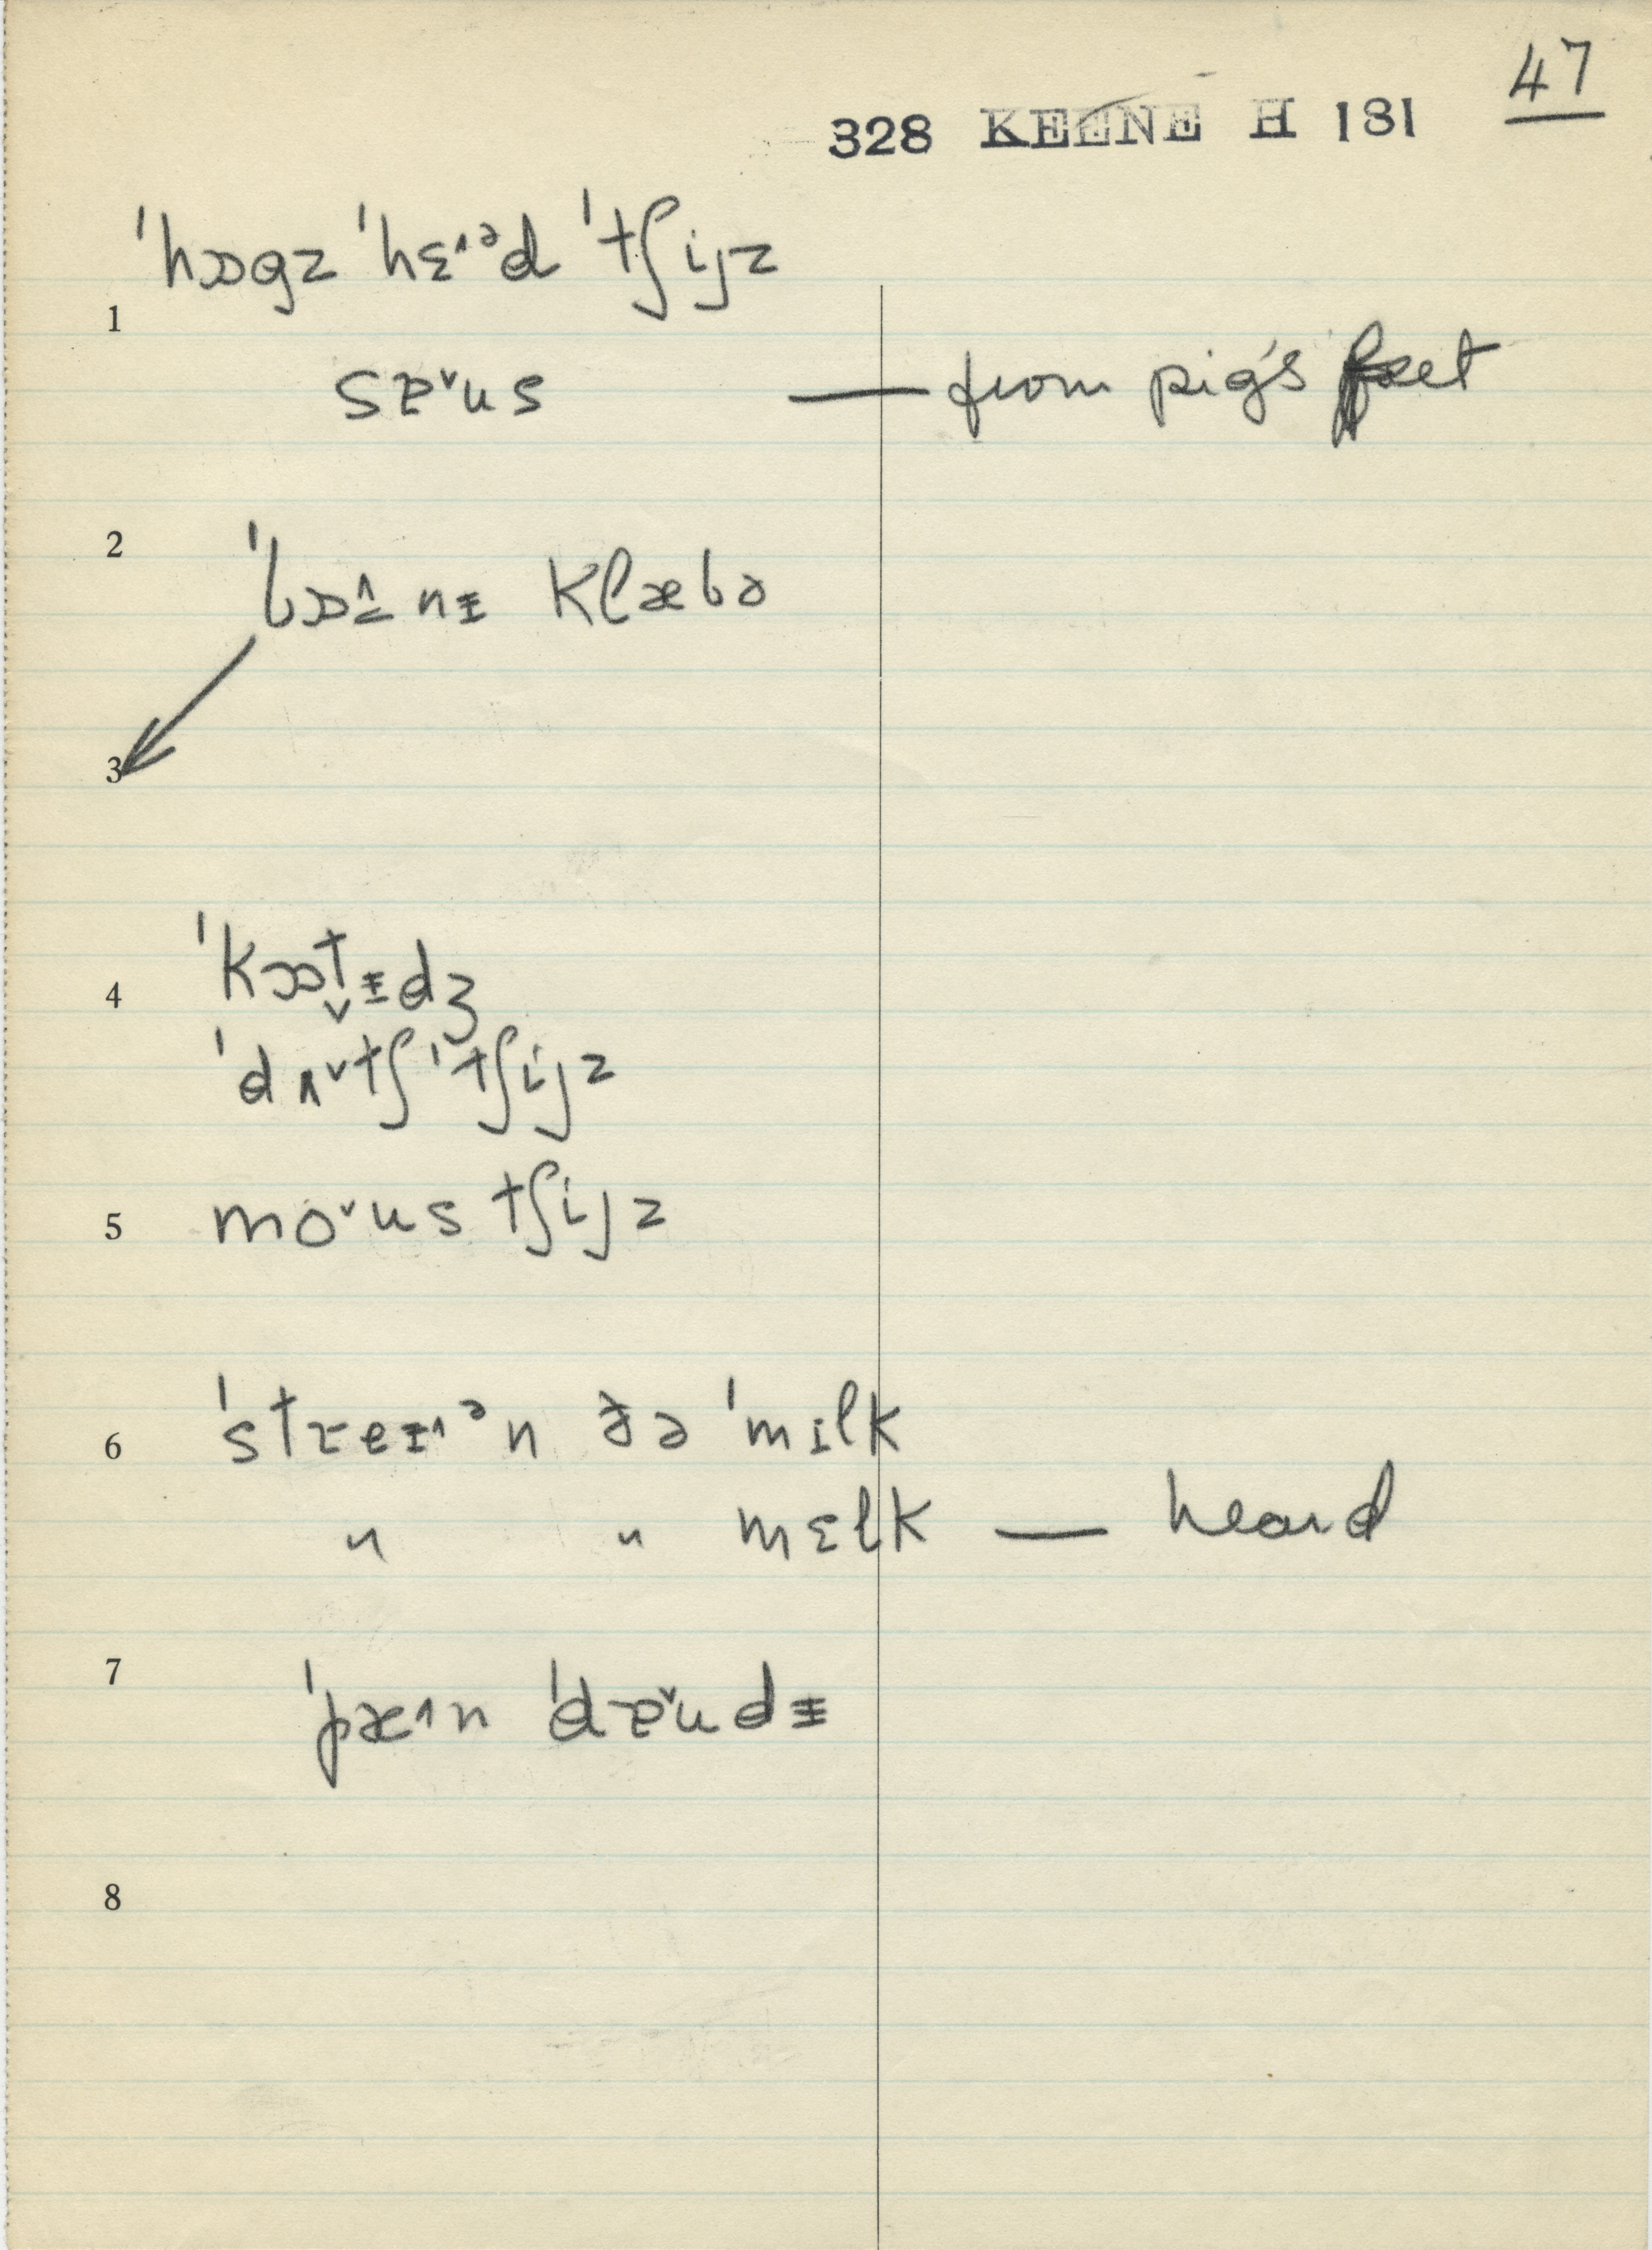 47
328 KEENE H 181
ˈhɔgz ˈhɛ˄ᵊd ˈtʃijz
1
sɐ˅us — from pig's feet
2
ˈbɒ˄nɪ klæbə
3
4
ˈkɒt̬ɪdʒ
ˈdʌ˅tʃ ˈtʃijz
5
mɔ˅us tʃijz
6
ˈstɹeɪ˄ᵊn ðə ˈmɪlk
" " mɛlk — heard
7
ˈpæ˄n ˈdɐ˅udɪ
8